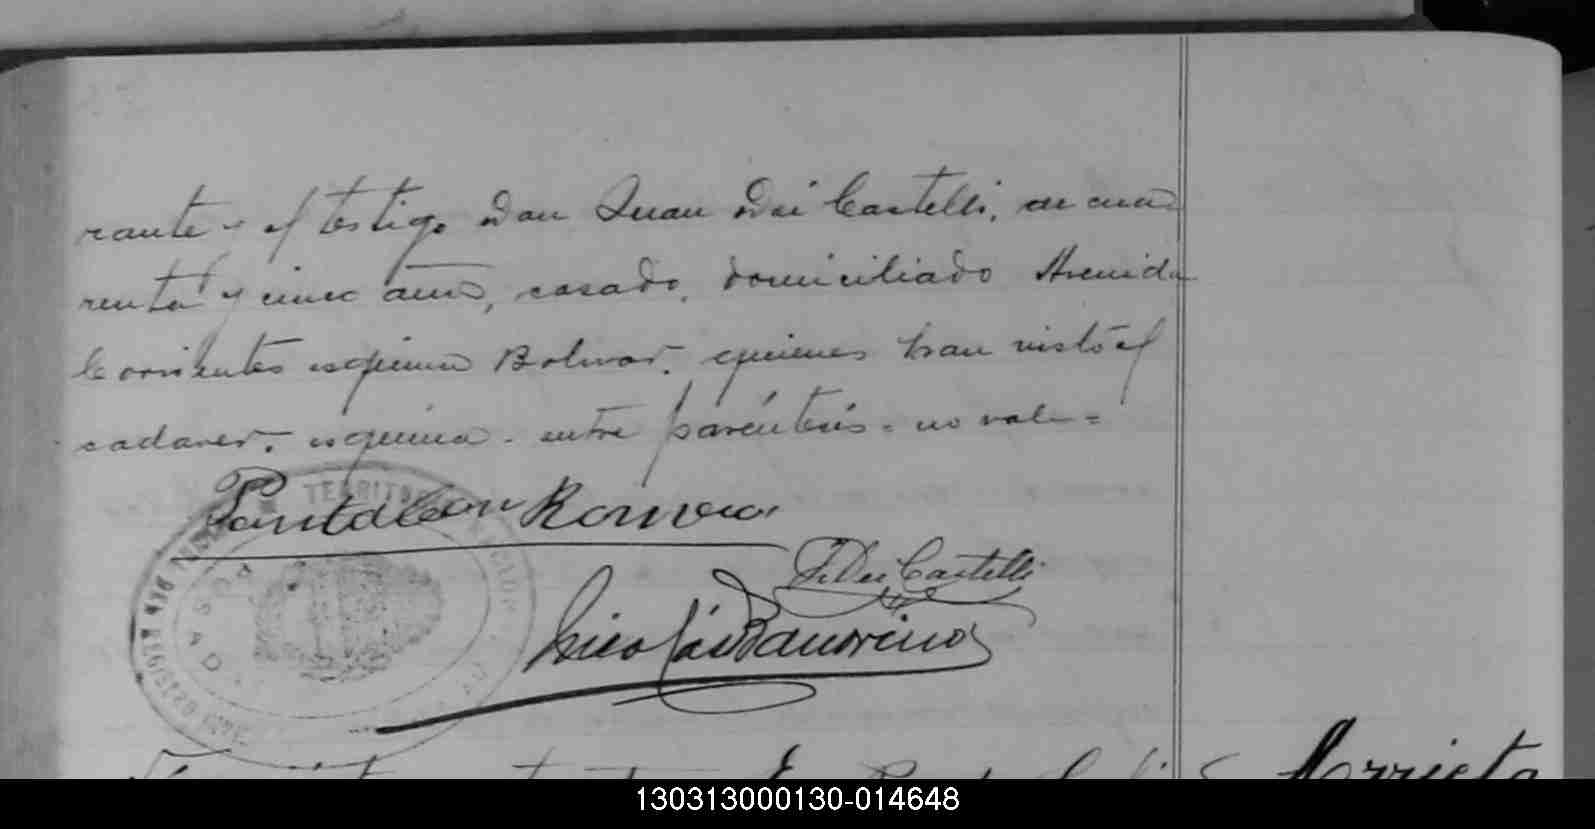 rante y el testigo Don Juan Dei Castelli, de cua-
renta y cinco años, casado, domiciliado Avenida
Corrientes esquina Bolivar, quienes han visto el
cadaver. esquina - entre paréntesis = no vale =
Pantaleon Romero
TERRITORIO
DEL REGISTRO
POSADAS
J. Dei Castelli
Nicolás
Arrieta
130313000130-014648